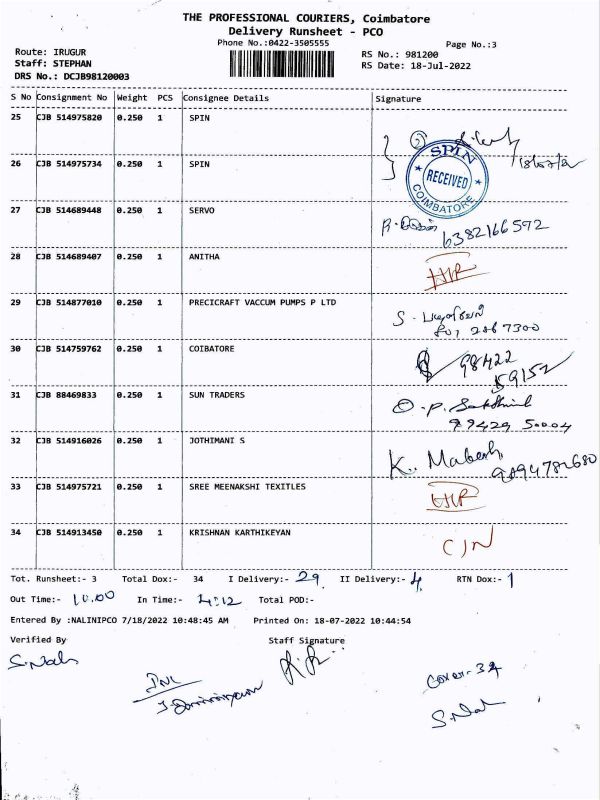 THE PROFESSIONAL COURIERS, Coimbatore
Delivery Runsheet - PCO
Phone No.:0422-3505555
Page No.:3
Route: IRUGUR
RS No.: 981200
Staff: STEPHAN
RS Date: 18-Jul-2022
DRS No.: DCJB98120003
S No Consignment No Weight PCS Consignee Details Signature
25 CJB 514975820 0.250 1 SPIN
26 CJB 514975734 0.250 1 SPIN
SPIN RECEIVED COIMBATORE
27 CJB 514689448 0.250 1 SERVO
6382166592
28 CJB 514689407 0.250 1 ANITHA
29 CJB 514877010 0.250 1 PRECICRAFT VACCUM PUMPS P LTD
S.
2067300
30 CJB 514759762 0.250 1 COIBATORE
98422
59152
31 CJB 88469833 0.250 1 SUN TRADERS
99429 50004
32 CJB 514916026 0.250 1 JOTHIMANI S
K. Mahesh
9894782680
33 CJB 514975721 0.250 1 SREE MEENAKSHI TEXITLES
34 CJB 514913450 0.250 1 KRISHNAN KARTHIKEYAN
C/N
Tot. Runsheet:- 3 Total Dox:- 34 I Delivery:- 29 II Delivery:- 4 RTN Dox:- 1
Out Time:- 10.00 In Time:- 4:12 Total POD:-
Entered By :NALINIPCO 7/18/2022 10:48:45 AM Printed On: 18-07-2022 10:44:54
Verified By Staff Signature
Cover-34